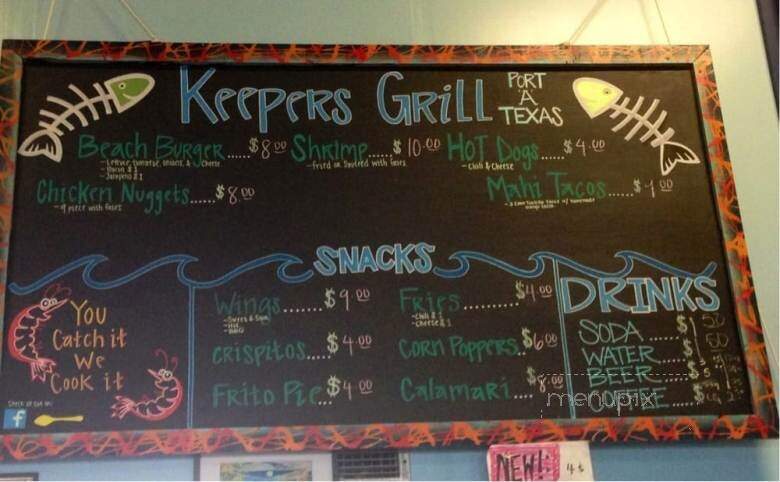 Keepers Grill PORT
"A"
TEXAS
Beach Burger.....$8.00 Shrimp.....$10.00 HOT Dogs.....$4.00
-Lettuce, tomatoe, onions, & Cheese
-Bacon $1
-Jalapeno $1
-Fried or Sauteed with fries
-Chili & Cheese
Chicken Nuggets.....$8.00 Mahi Tacos.....$
-9 piece with fries
SNACKS
Wings.......$9.00 Fries.......$4.00
-Sweet &
-Hot
-BBQ
-Chili $1
-Cheese $1
crispitos....$4.00 corn Poppers..$6.00
Frito Pie..$4.00 Calamari...$8.00
DRINKS
SODA....$1.50
WATER....$1.00
BEER....$
COFFEE....$
You
Catch it
We
Cook it
check us out on:
f
menupix
NEW!